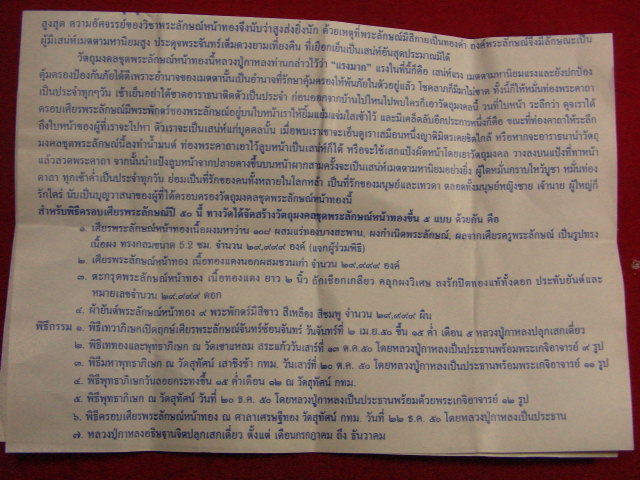 สูงสุด ความอัศจรรย์ของวิชาพระลักษณ์หน้าทองจึงนับว่าสูงส่งยิ่งนัก ด้วยเหตุที่พระลักษณ์มีสีกายเป็นทองคำ องค์พระลักษณ์จึงมีลักษณะเป็น
ผู้มีเสน่ห์เมตตามหานิยมสูง ประดุจพระจันทร์เต็มดวงยามเที่ยงคืน ที่เยือกเย็นเป็นเสน่ห์อันสุดประมาณมิได้
วัตถุมงคลชุดพระลักษณ์หน้าทองนี้หลวงปู่กาหลงท่านกล่าวไว้ว่า "แรงมาก" แรงในที่นี้ก็คือ เสน่ห์แรง เมตตามหานิยมแรงและยังปกป้อง
คุ้มครองป้องกันภัยได้ดีเพราะอำนาจของเมตตานั้นเป็นอำนาจที่รักษาคุ้มครองให้พ้นภัยในตัวอยู่แล้ว โชคลาภก็มีมากไม่ขาด ทั้งนี้ก็ให้หมั่นท่องพระคาถา
เป็นประจำทุกๆวัน เช้าเย็นอย่าได้ขาดอาราธนาติดตัวเป็นประจำ ก่อนออกจากบ้านไปไหนไปพบใครก็เอาวัตถุมงคลนี้ วนที่ใบหน้า ระลึกว่า ดุจเราได้
ครอบเศียรพระลักษณ์มีพระพักตร์ของพระลักษณ์อยู่บนใบหน้าเราให้ยิ้มแย้มแจ่มใสเข้าไว้ และมีเคล็ดลับอีกประการหนึ่งก็คือ ขณะที่ท่องคาถาให้ระลึก
ถึงใบหน้าของผู้ที่เราจะไปหา ตัวเราจะเป็นเสน่ห์แก่บุคคลนั้น เมื่อพบเราเขาจะเอ็นดูเราเสมือนหนึ่งญาติมิตรเคยชิดใกล้ หรือหากจะอาราธนานำวัตถุ
มงคลชุดพระลักษณ์นี้ลงทำน้ำมนต์ ท่องพระคาถาเอาไว้ลูบหน้าเป็นเสน่ห์ก็ได้ หรือจะใช้เสกแป้งผัดหน้าโดยเอาวัตถุมงคล วางลงบนแป้งที่ทาหน้า
แล้วสวดพระคาถา จากนั้นนำแป้งลูบหน้าจากปลายคางขึ้นบนหน้าผากสามครั้งจะเป็นเสน่ห์เมตตามหานิยมอย่างยิ่ง ผู้ใดหมั่นกราบไหว้บูชา หมั่นท่อง
คาถา ทุกเช้าค่ำเป็นประจำทุกวัน ย่อมเป็นที่รักของคนทั้งหลายในโลกหล้า เป็นที่รักของมนุษย์และเทวดา ตลอดทั้งมนุษย์หญิงชาย เจ้านาย ผู้ใหญ่ก็
รักใคร่ นับเป็นบุญวาสนาของผู้ที่ได้ครอบครองวัตถุมงคลชุดพระลักษณ์หน้าทองนี้
สำหรับพิธีครอบเศียรพระลักษณ์ปี ๕๐ นี้ ทางวัดได้จัดสร้างวัตถุมงคลชุดพระลักษณ์หน้าทองขึ้น ๕ แบบ ด้วยกัน คือ
๑. เศียรพระลักษณ์หน้าทองเนื้อผงมหาว่าน ๑๐๘ ผสมแร่ทองบางสะพาน, ผงกำเนิดพระลักษณ์, ผลจากเศียรครูพระลักษณ์ เป็นรูปทรง
เนื้อผง ทรงกลมขนาด ๕.๒ ซม. จำนวน ๒๙,๙๙๙ องค์ (แจกผู้ร่วมพิธี)
๒. เศียรพระลักษณ์หน้าทอง เนื้อทองแดงนอกผสมชนวนเก่า จำนวน ๒๙,๙๙๙ องค์
๓. ตะกรุดพระลักษณ์หน้าทอง เนื้อทองแดง ยาว ๒ นิ้ว ถักเชือกเกลียว คลุกผงวิเศษ ลงรักปิดทองแท้ทั้งดอก ประทับยันต์และ
หมายเลขจำนวน ๒๙,๙๙๙ ดอก
๔. ผ้ายันต์พระลักษณ์หน้าทอง ๙ พระพักตร์มีสีขาว สีเหลือง สีชมพู จำนวน ๒๙,๙๙๙ ผืน
พิธีกรรม ๑. พิธีเทวาภิเษกเปิดฤกษ์เศียรพระลักษณ์จันทร์ซ้อนจันทร์ วันจันทร์ที่ ๒ เม.ย.๕๐ ขึ้น ๑๕ ค่ำ เดือน ๕ หลวงปู่กาหลงปลุกเสกเดี่ยว
๒. พิธีเททองและพุทธาภิเษก ณ วัดเขาแหลม สระแก้ววันเสาร์ที่ ๑๓ ต.ค.๕๐ โดยหลวงปู่กาหลงเป็นประธานพร้อมพระเกจิอาจารย์ ๙ รูป
๓. พิธีมหาพุทธาภิเษก ณ วัดสุทัศน์ เสาชิงช้า กทม. วันเสาร์ที่ ๒๐ ต.ค. ๕๐ โดยหลวงปู่กาหลงเป็นประธานพร้อมพระเกจิอาจารย์ ๑๑ รูป
๔. พิธีพุทธาภิเษกวันลอยกระทงขึ้น ๑๕ ค่ำเดือน ๑๒ ณ วัดสุทัศน์ กทม.
๕. พิธีพุทธาภิเษก ณ วัดสุทัศน์ วันที่ ๒๐ ธ.ค. ๕๐ โดยหลวงปู่กาหลงเป็นประธานพร้อมด้วยพระเกจิอาจารย์ ๑๒ รูป
๖. พิธีครอบเศียรพระลักษณ์หน้าทอง ณ ศาลาเศรษฐีทอง วัดสุทัศน์ กทม. วันที่ ๒๒ ธ.ค. ๕๐ โดยหลวงปู่กาหลงเป็นประธาน
๗. หลวงปู่กาหลงอธิษฐานจิตปลุกเสกเดี่ยว ตั้งแต่ เดือนกรกฎาคม ถึง ธันวาคม